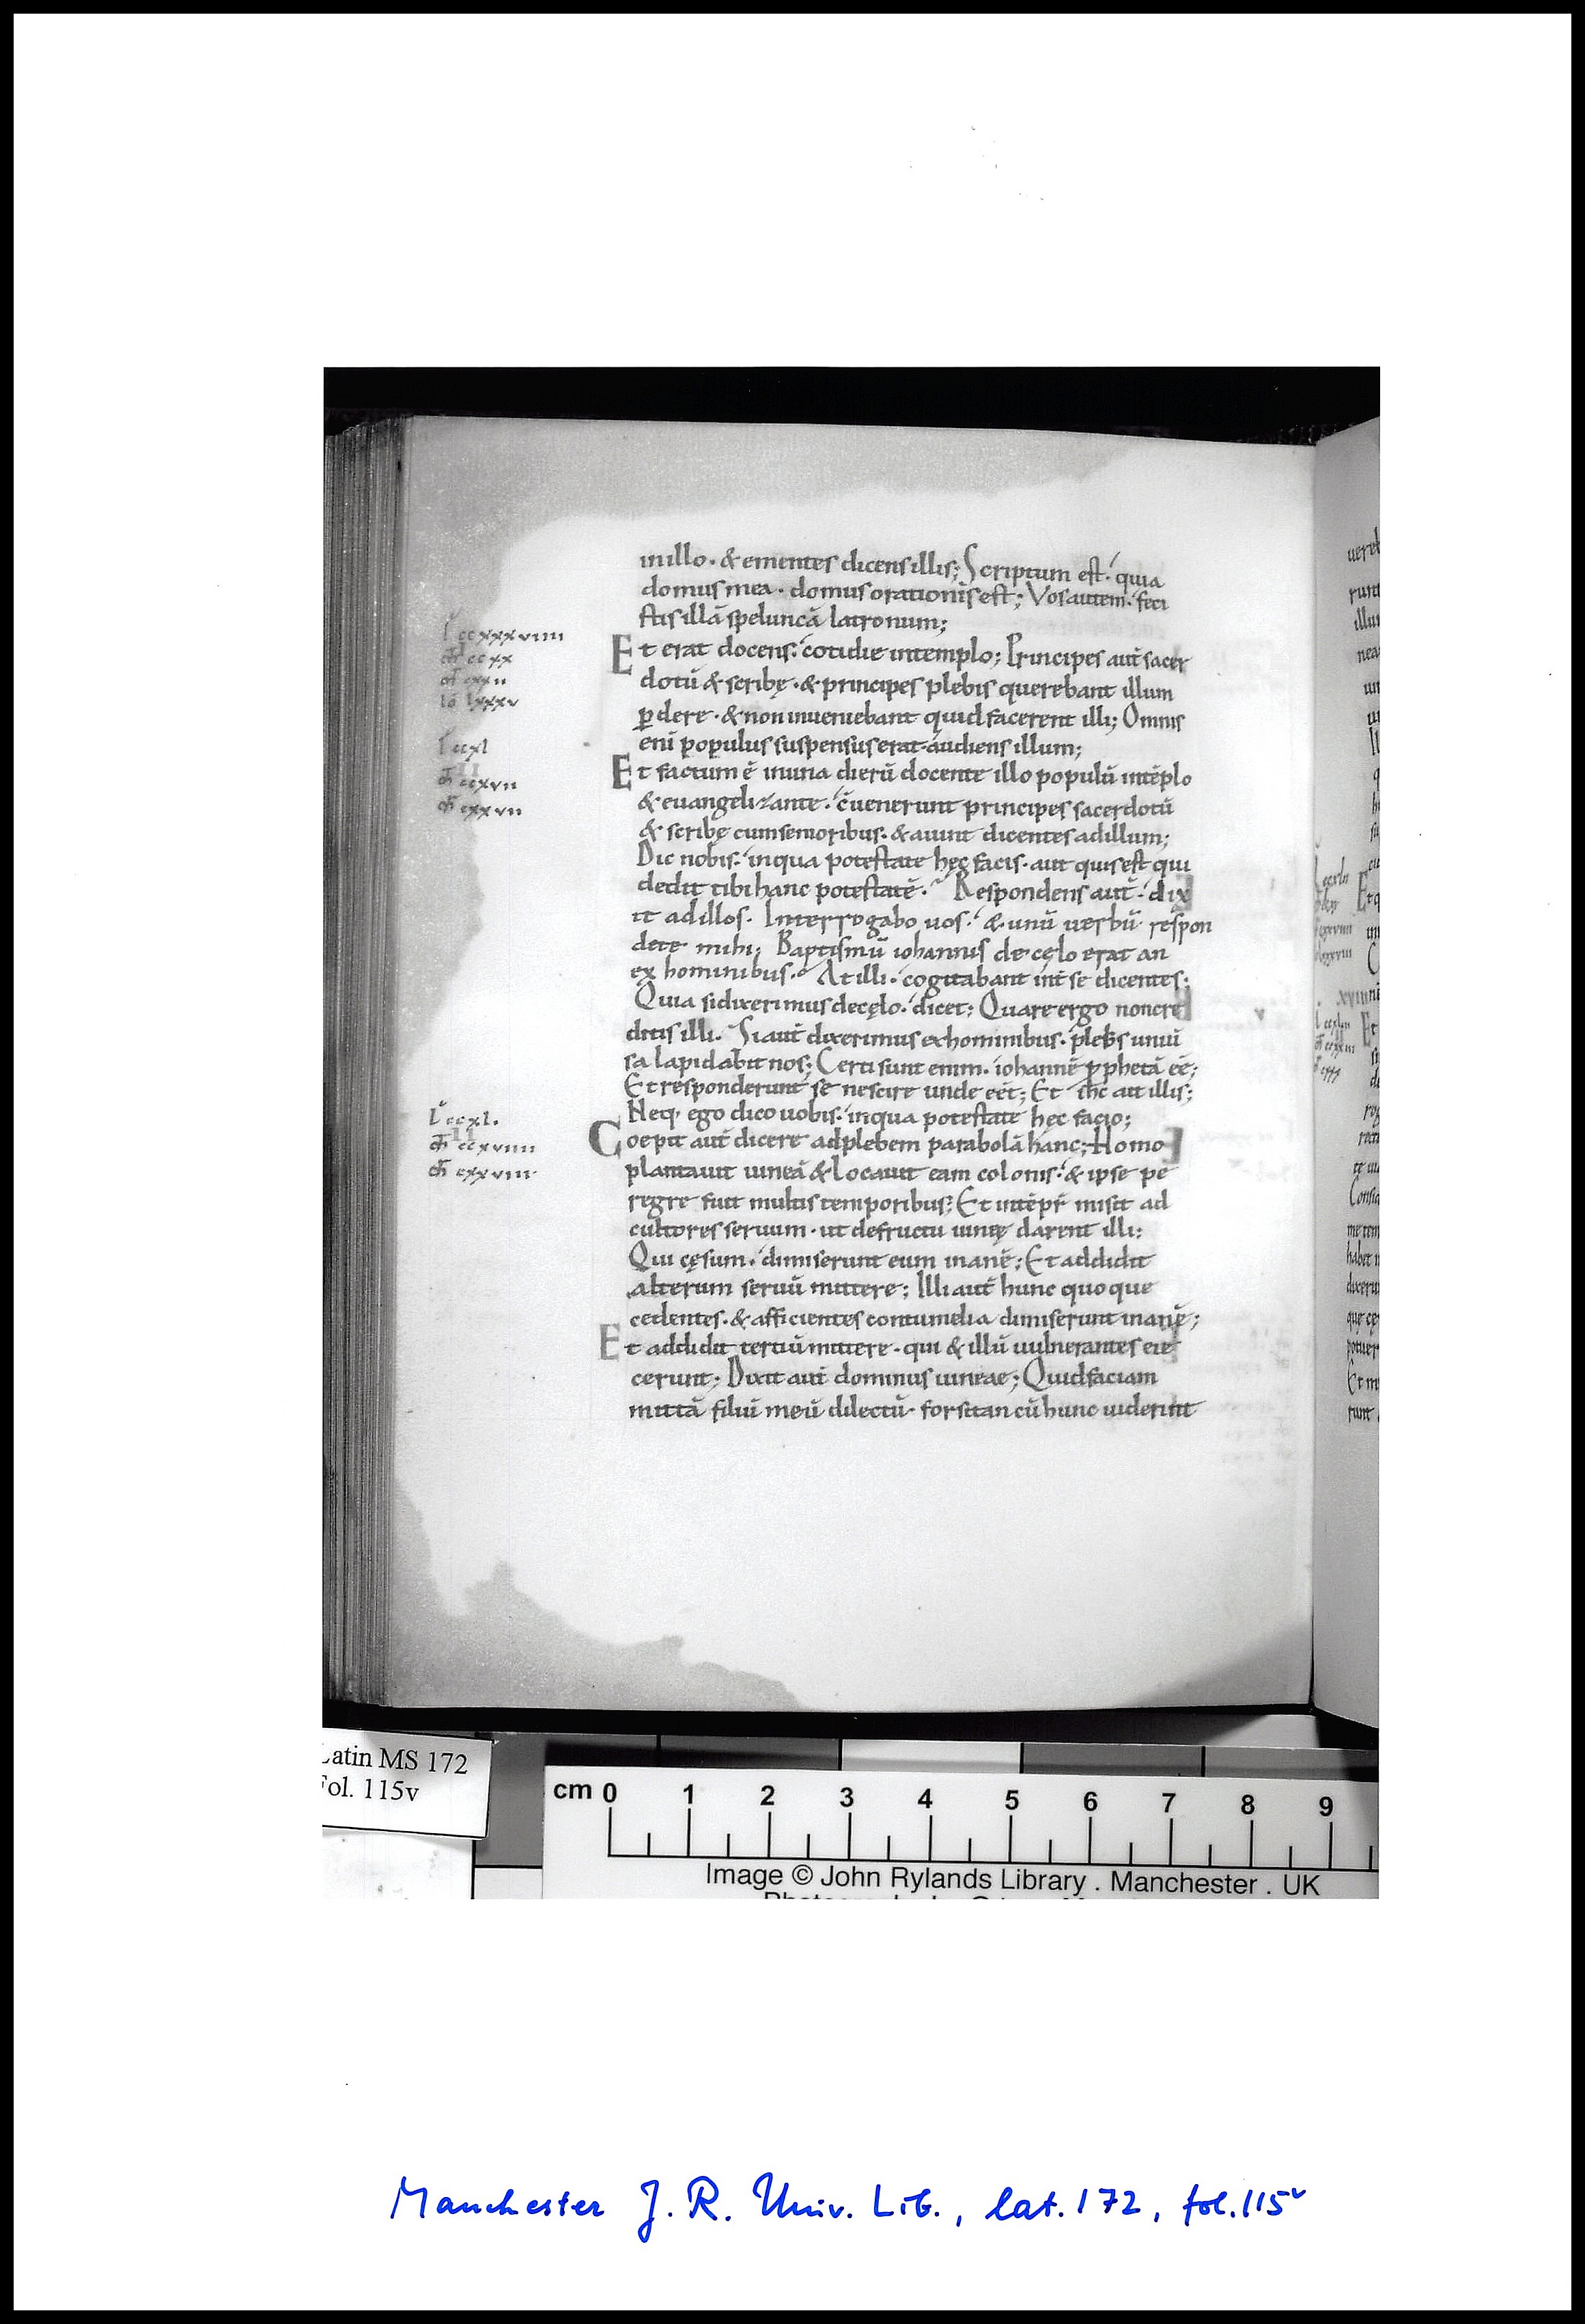 inillo · & ementes dicens illis; Scriptum est · quia
domus mea · domus orationis est; Vos autem · feci
stis illā speluncā latronum;
Et erat docens · cotidie in templo; Principes aut̄ sacer
dotū & scribę · & principes plebis querebant illum
ꝑdere · & non inueniebant quid facerent illi; Omnis
eni populus suspensus erat audiens illum;
Et factum ē in una dierū docente illo populū in tēplo
& euangelizante · c̄uenerunt principes sacerdotū
& scribę cum senioribus · & aiunt dicentes ad illum;
Dic nobis · in qua potestate hęc facis · aut quis est qui
dedit tibi hanc potestatē · Respondens aut̄ · dix
it ad illos · Interrogabo uos · & unū uerbū respon
dete mihi; Baptismū iohannis de cęlo erat an
ex hominibus · At illi · cogitabant int̄ se dicentes;
Quia si dixerimus de cęlo · dicet; Quare ergo non cre
ditis illi · Si aut̄ dixerimus ex hominibus · plebs uniū
sa lapidabit nos; Certi sunt enim · iohannē ꝓphetā eē;
Et responderunt se nescire unde eēt; Et ihc ait illis;
Neq· ego dico uobis · in qua potestate hęc facio;
Coepit aut̄ dicere ad plebem parabolā hanc; Homo
plantauit uineā & locauit eam colonis · & ipse pe
regre fuit multis temporibus; Et in tēpr̄ misit ad
cultores seruum · ut de fructu uineę darent illi;
Qui cęsum · dimiserunt eum inanē; Et addidit
alterum seruū mittere; Illi aut̄ hunc quoque
cedentes · & afficientes contumelia dimiserunt inanē;
Et addidit tertiū mittere · qui & illū uulnerantes eie
cerunt; Dixit aut̄ dominus uineae; Quid faciam
mittā filiū meū dilectū · forsitan cū hunc uiderint
l̄ ccxxxviiii
m̄ ccxx
l ccxl
m̄ ccxvii
m̄ cxxvii
l̄ ccxl.
m̄ ccxviiii
m̄ cxxviiii
Latin MS 172
Fol. 115v
cm 0 1 2 3 4 5 6 7 8 9
Image © John Rylands Library . Manchester . UK
Manchester J. R. Univ. Lib., lat. 172, fol. 115v